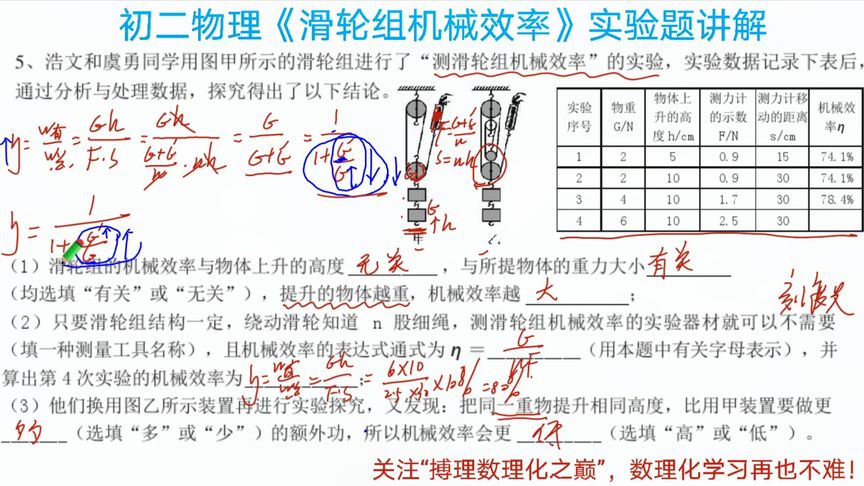 初二物理《滑轮组机械效率》实验题讲解
5、浩文和虞勇同学用图甲所示的滑轮组进行了“测滑轮组机械效率”的实验，实验数据记录下表后，
通过分析与处理数据，探究得出了以下结论。
实验序号 物重G/N 物体上升的高度h/cm 测力计的示数F/N 测力计移动的距离s/cm 机械效率η
1 2 5 0.9 15 74.1%
2 2 10 0.9 30 74.1%
3 4 10 1.7 30 78.4%
4 6 10 2.5 30
（1）滑轮组的机械效率与物体上升的高度 无关 ，与所提物体的重力大小 有关
（均选填“有关”或“无关”），提升的物体越重，机械效率越 大 ；
（2）只要滑轮组结构一定，绕动滑轮知道 n 股细绳，测滑轮组机械效率的实验器材就可以不需要 刻度尺
（填一种测量工具名称），且机械效率的表达式通式为 η = G/nF （用本题中有关字母表示），并
算出第 4 次实验的机械效率为 ；
（3）他们换用图乙所示装置再进行实验探究，又发现：把同一重物提升相同高度，比用甲装置要做更
多 （选填“多”或“少”）的额外功，所以机械效率会更 低 （选填“高”或“低”）。
关注“搏理数理化之巅”，数理化学习再也不难！